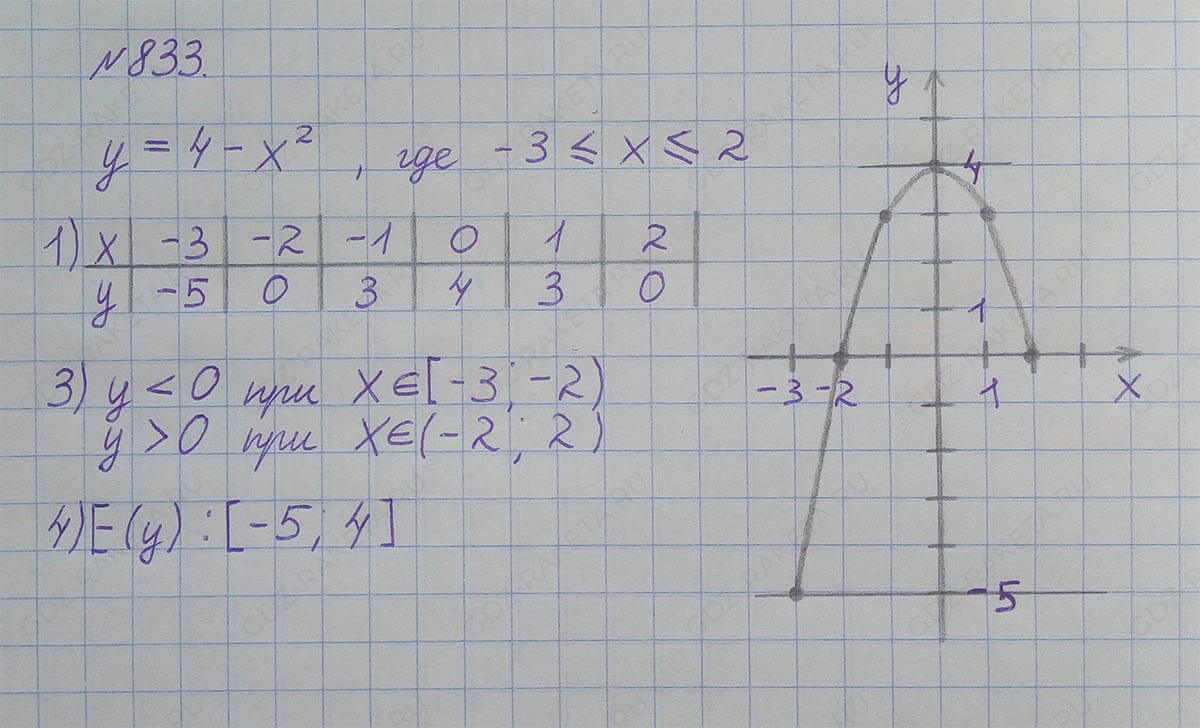 №833.
y = 4 - x² , где -3 ≤ x ≤ 2
1) x | -3 | -2 | -1 | 0 | 1 | 2
y | -5 | 0 | 3 | 4 | 3 | 0
3) y < 0 при x∈[-3; -2)
y > 0 при x∈(-2; 2)
4) E(y) : [-5; 4]
y
4
1
-3 -2 1 x
-5
GDZ-RAKETA.RU